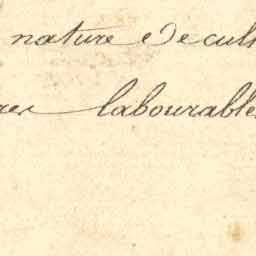 nature de cul
res labourable